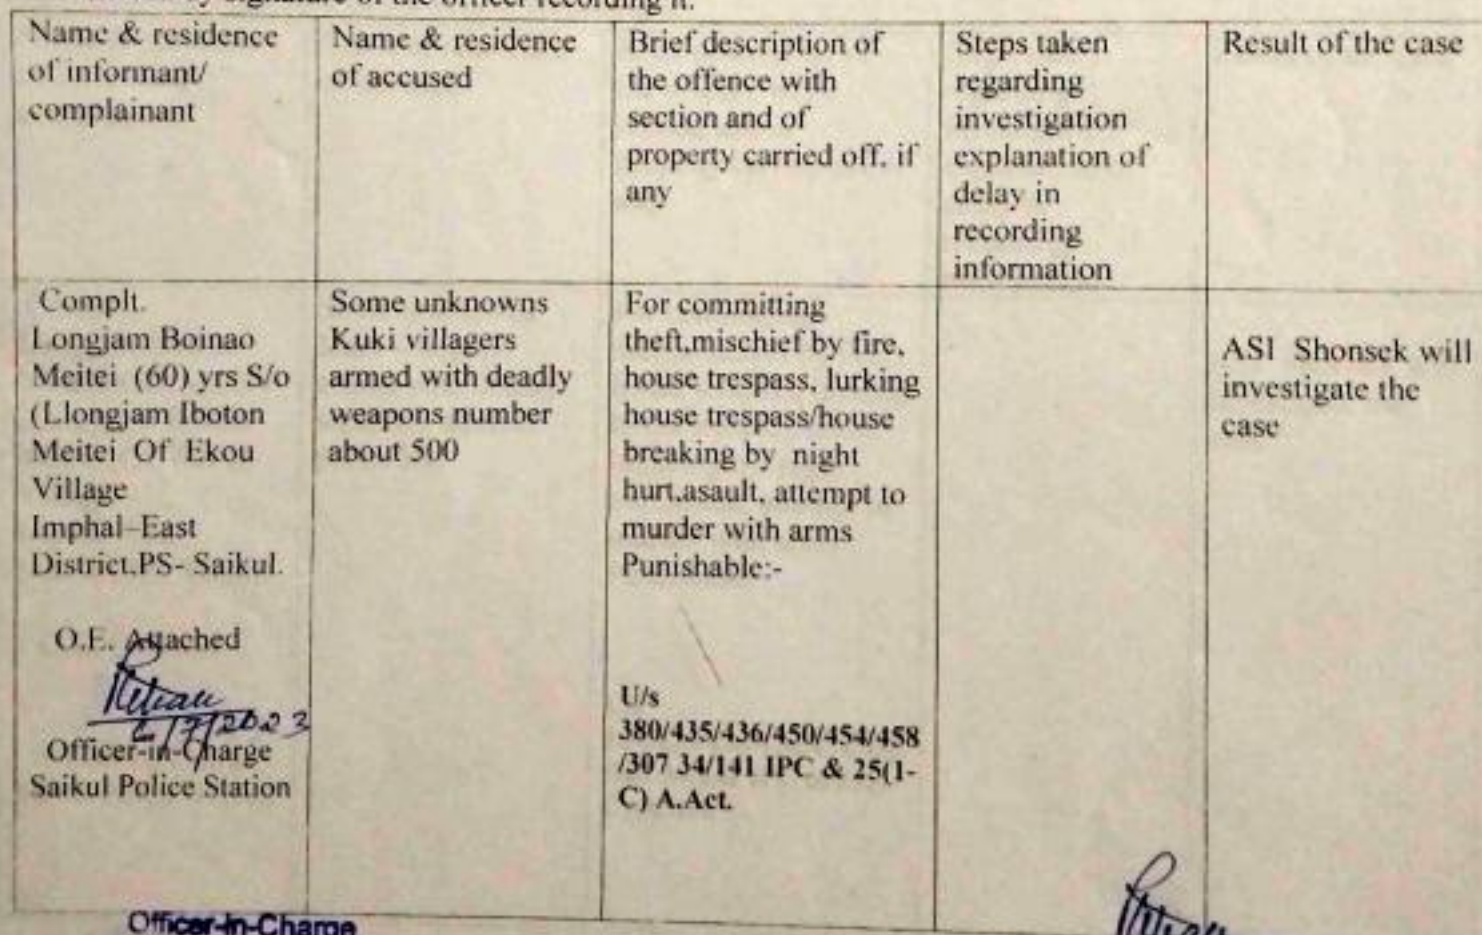 signature of the officer recording it.
Name & residence
of informant/
complainant
Name & residence
of accused
Brief description of
the offence with
section and of
property carried off, if
any
Steps taken
regarding
investigation
explanation of
delay in
recording
information
Result of the case
Complt.
Longjam Boinao
Meitei (60) yrs S/o
(Llongjam Iboton
Meitei Of Ekou
Village
Imphal–East
District,PS- Saikul.
O.E. Attached
/7/2023
Officer-in-Charge
Saikul Police Station
Some unknowns
Kuki villagers
armed with deadly
weapons number
about 500
For committing
theft,mischief by fire,
house trespass, lurking
house trespass/house
breaking by night
hurt,asault, attempt to
murder with arms
Punishable:-
U/s
380/435/436/450/454/458
/307 34/141 IPC & 25(1-
C) A.Act.
ASI Shonsek will
investigate the
case
Officer-in-Charge